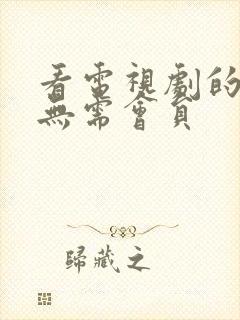 看電視劇的
無需會員
歸藏之